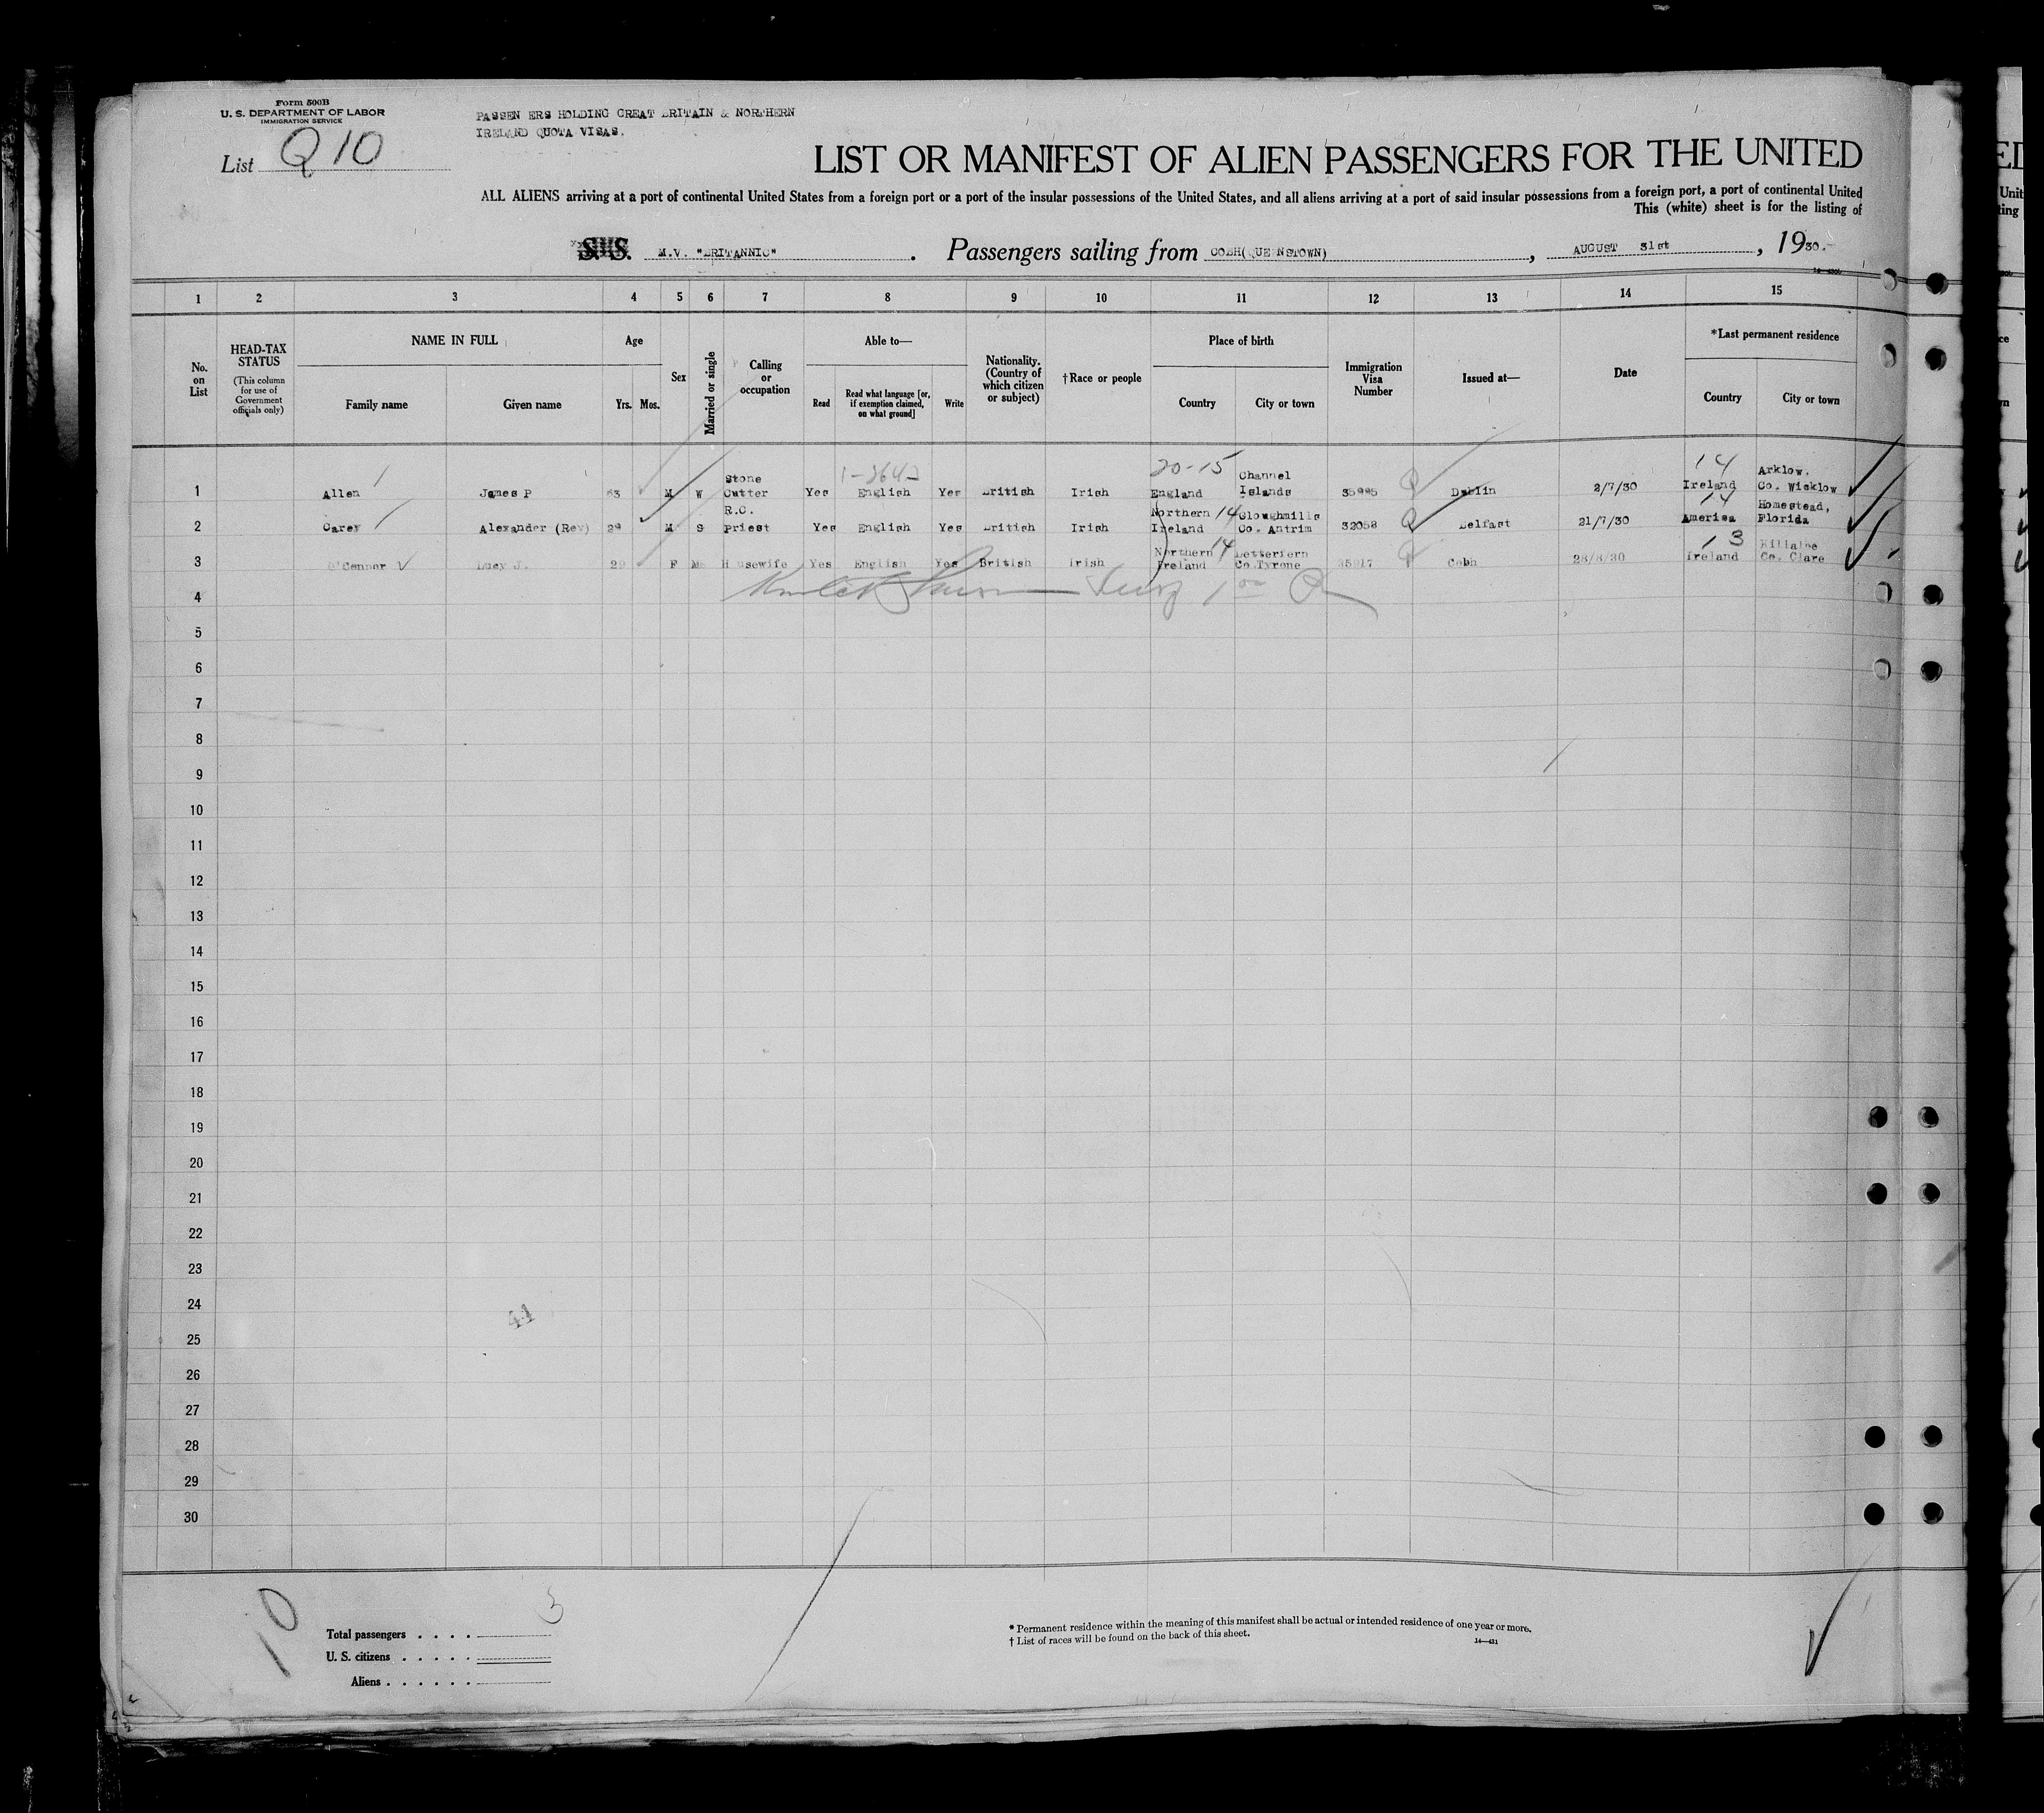 Form 500B
U. S. DEPARTMENT OF LABOR
IMMIGRATION SERVICE
List Q 10
PASSEN ERS HOLDING GREAT BRITAIN & NORTHERN
IRELAND QUOTA VISAS.
LIST OR MANIFEST OF ALIEN PASSENGERS FOR THE UNITED
ALL ALIENS arriving at a port of continental United States from a foreign port or a port of the insular possessions of the United States, and all aliens arriving at a port of said insular possessions from a foreign port, a port of continental United
This (white) sheet is for the listing of
S. S. M.V. "BRITANNIC" . Passengers sailing from COBH(QUEENSTOWN) , AUGUST 31st , 1930.
1 2 3 4 5 6 7 8 9 10 11 12 13 14 15
No. on List
HEAD-TAX STATUS
(This column for use of Government officials only)
NAME IN FULL
Family name Given name
Age
Yrs. Mos.
Sex
Married or single
Calling or occupation
Able to—
Read
Read what language [or, if exemption claimed, on what ground]
Write
Nationality. (Country of which citizen or subject)
†Race or people
Place of birth
Country City or town
Immigration Visa Number
Issued at—
Date
*Last permanent residence
Country City or town
1 Allen James P 63 M W Stone Cutter Yes English Yes British Irish 20-15 England Channel Islands 35995 Q Dublin 2/7/30 14 Ireland Arklow. Co. Wicklow
2 Carey Alexander (Rev) 29 M S R.C. Priest Yes English Yes British Irish Northern Ireland 14 Cloughmills Co. Antrim 32058 Q Belfast 21/7/30 14 America Homestead, Florida
3 O'Connor Lucy J. 29 F M Housewife Yes English Yes British Irish Northern Ireland 14 Co.Tyrone 35917 Q Cobh 28/8/30 13 Ireland Co. Clare
4
5
6
7
8
9
10
11
12
13
14
15
16
17
18
19
20
21
22
23
24
25
26
27
28
29
30
44
10
3
Total passengers . . . .
U. S. citizens . . . . .
Aliens . . . . . .
* Permanent residence within the meaning of this manifest shall be actual or intended residence of one year or more.
† List of races will be found on the back of this sheet.
14—431